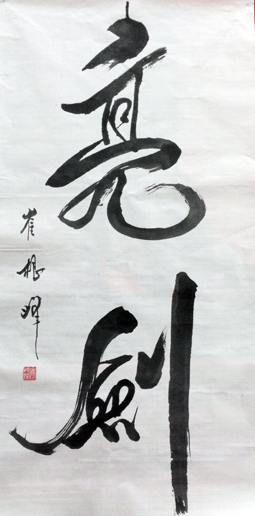 亮剑
崔根群